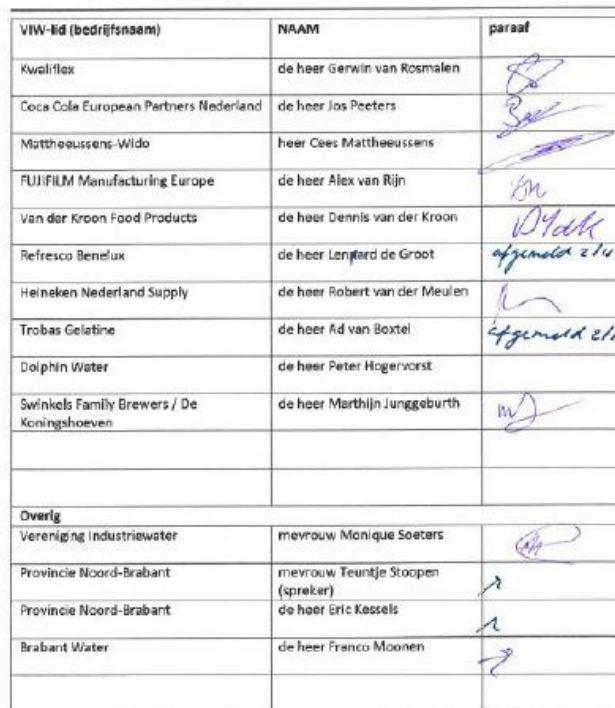 VIW-lid (bedrijfsnaam) NAAM paraaf
Kwaliflex de heer Gerwin van Rosmalen
Coca Cola European Partners Nederland de heer Jos Peeters
Mattheeussens-Wido heer Cees Mattheeussens
FUJIFILM Manufacturing Europe de heer Alex van Rijn
Van der Kroon Food Products de heer Dennis van der Kroon
Refresco Benelux de heer Lennard de Groot afgemeld 2/4
Heineken Nederland Supply de heer Robert van der Meulen
Trobas Gelatine de heer Ad van Boxtel afgemeld
Dolphin Water de heer Peter Hogervorst
Swinkels Family Brewers / De de heer Marthijn Junggeburth
Koningshoeven
Overig
Vereniging Industriewater mevrouw Monique Soeters
Provincie Noord-Brabant mevrouw Teuntje Stoopen
(spreker)
Provincie Noord-Brabant de heer Eric Kessels
Brabant Water de heer Franco Moonen